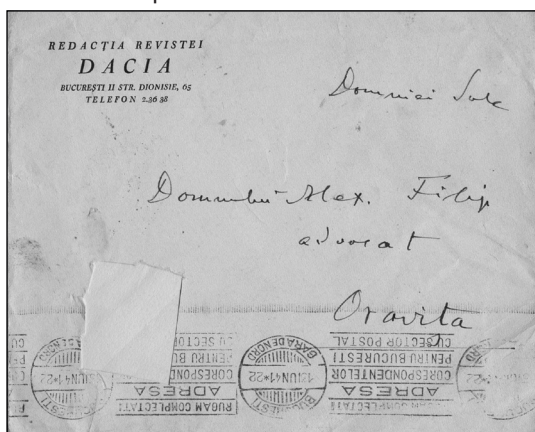 REDACȚIA REVISTEI
DACIA
BUCUREȘTI II STR. DIONISIE, 65
TELEFON 2.36 38
Domniei Sale
Domnului Alex. Filip
advocat
Oravita
RUGAM COMPLECTATI
ADRESA
CORESPONDENTELOR
PENTRU BUCURESTI
CU SECTOR POSTAL
BUCURESTI
13IUN41*22
GARADENORD